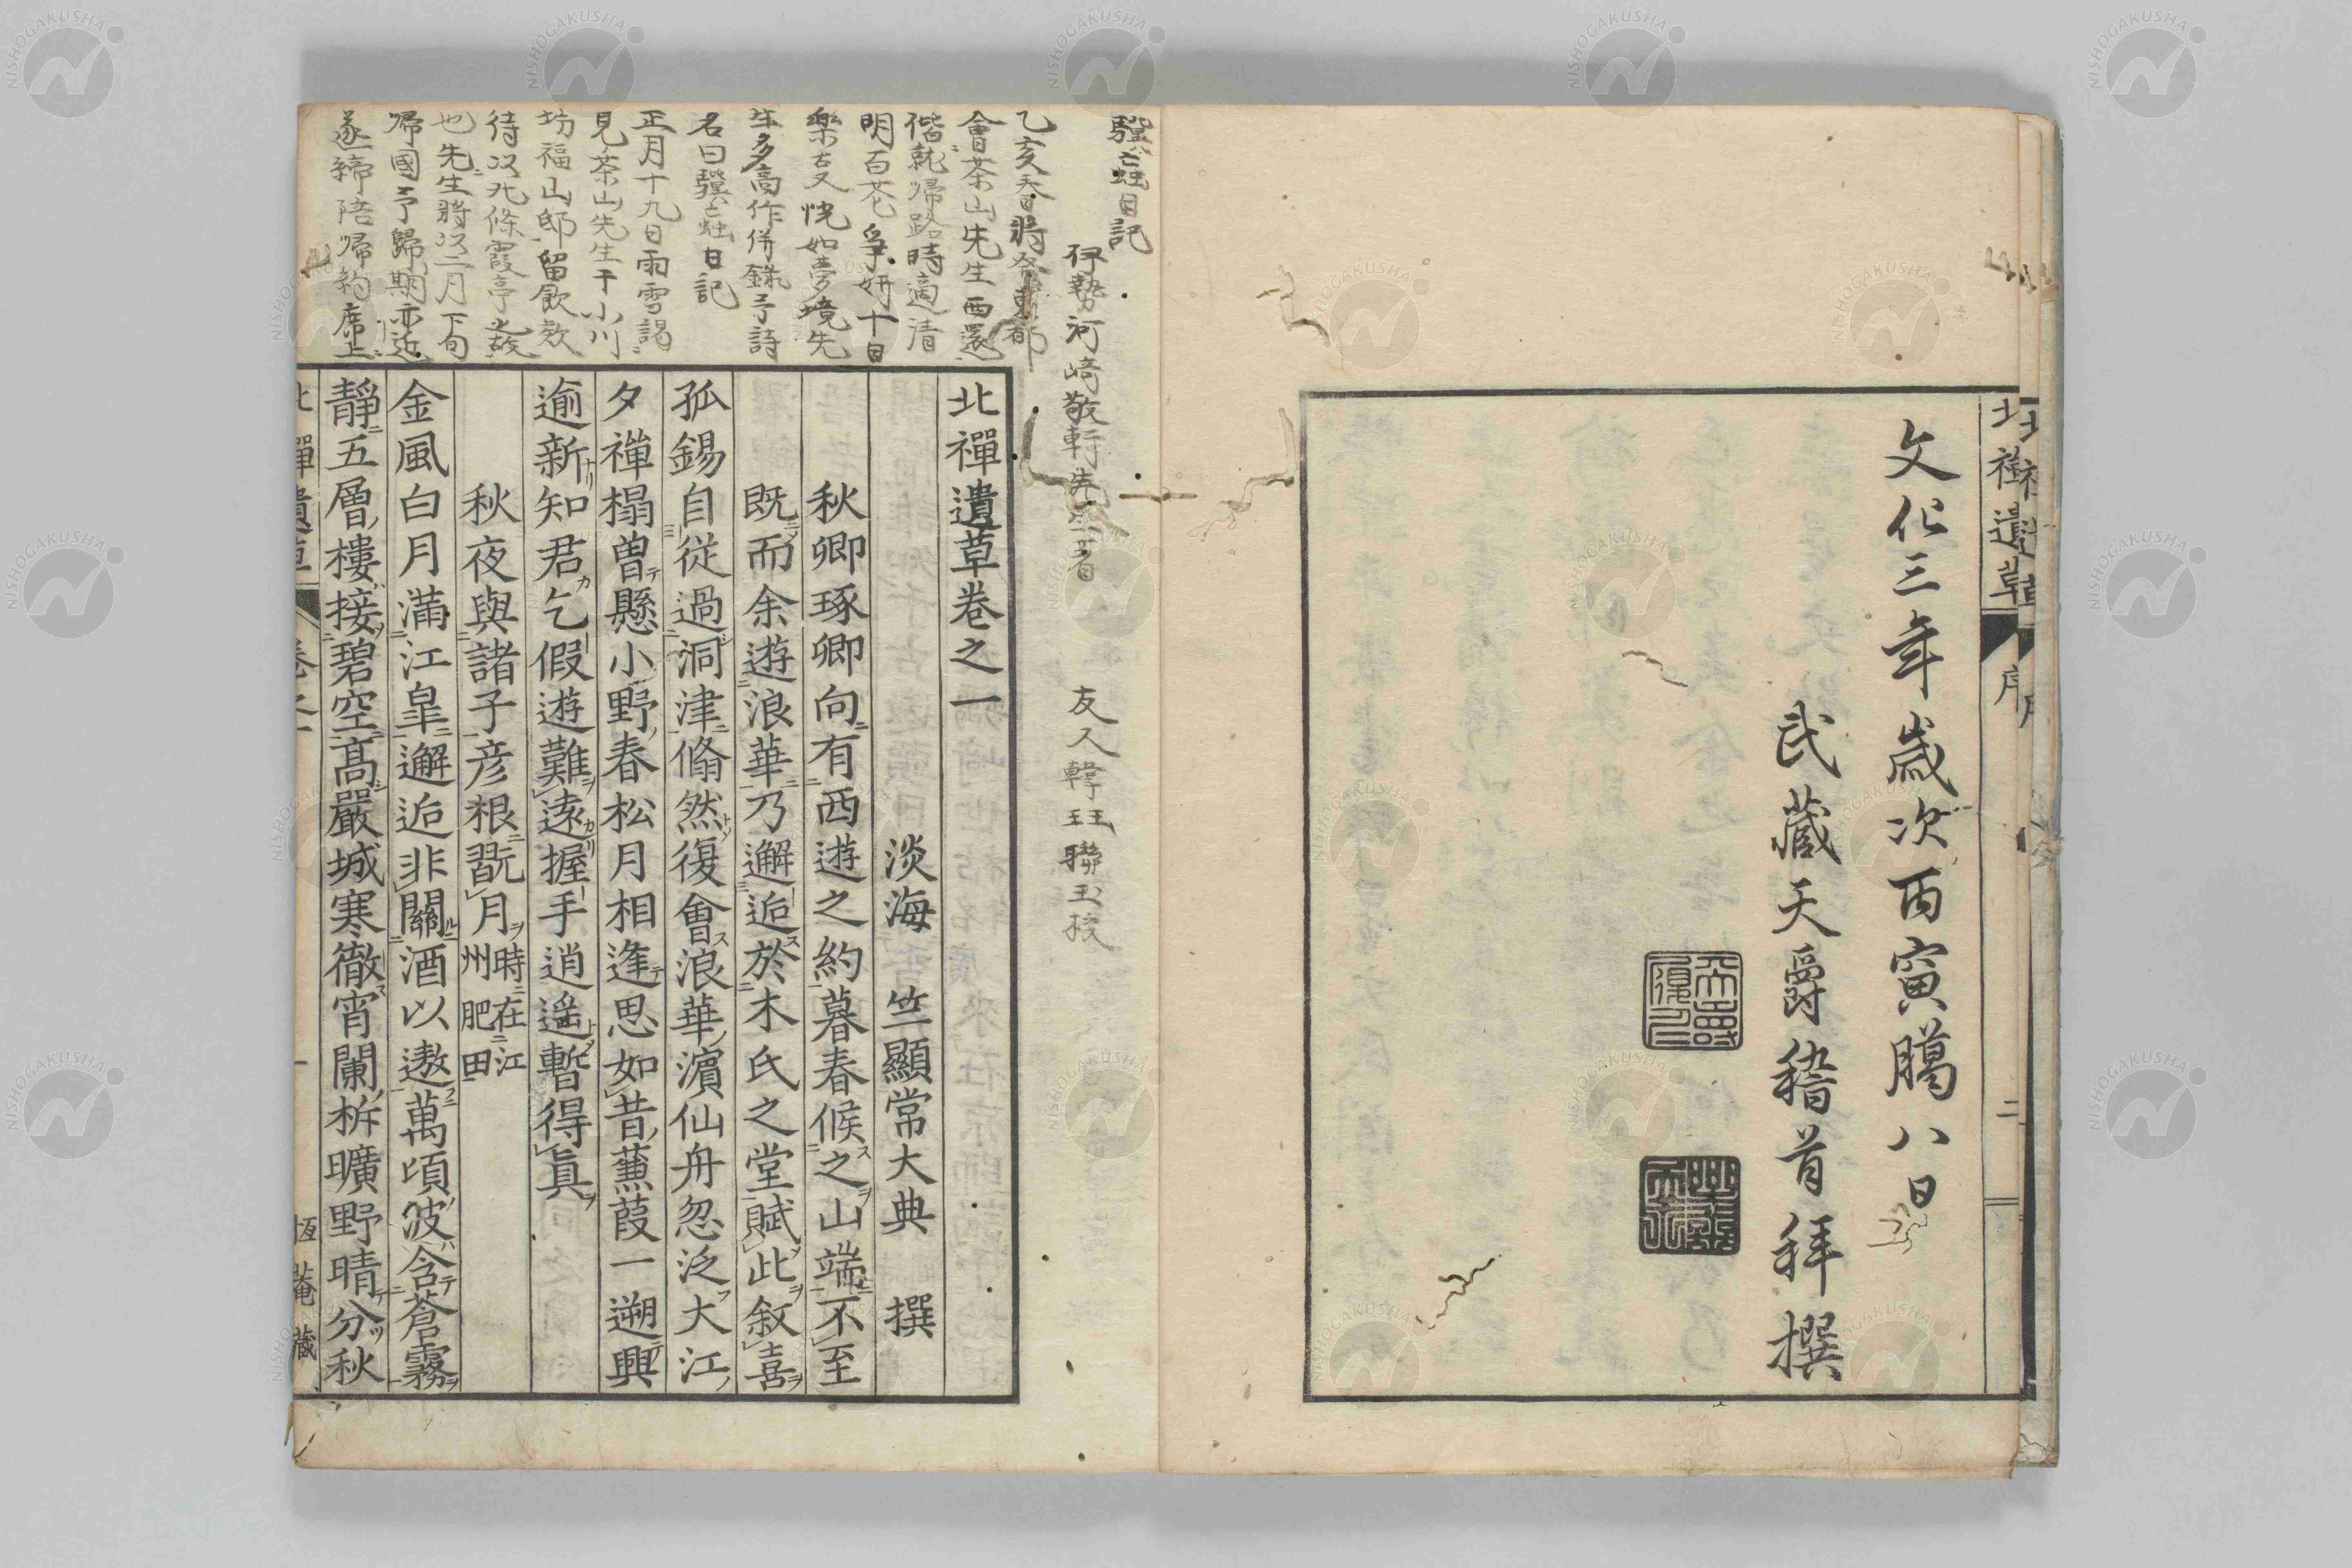 文化三年歳次丙寅臈八日
武藏天爵稽首拜撰
北禪遺草
序
二
驥蝱日記
伊勢河﨑敬軒先生著 友人韓珏聯玉校
乙亥春日將發東都
會茶山先生西還
偕就歸路時適清
明百花爭妍十日
樂事恍如夢境先
生多高作併錄予詩
名曰驥蝱日記
正月十九日雨雪謁
見茶山先生于小川
坊福山邸留飲款
待以北條霞亭故
也先生將以二月下旬
帰國予歸期亦近
遂締陪帰約席上
北禪遺草卷之一
淡海 竺顯常大典 撰
秋卿琢卿向有西遊之約暮春候之山端不至
既而余遊浪華乃邂逅於木氏之堂賦此敘喜
孤錫自從過洞津翛然復會浪華濵仙舟忽泛大江
夕禪榻曽懸小野春松月相逢思如昔蒹葭一遡興
逾新知君乞假遊難遠握手逍遙暫得眞
秋夜與諸子彦根翫月時在江州肥田
金風白月滿江皐邂逅非關酒以遨萬頃波含蒼霧
靜五層樓接碧空高嚴城寒徹宵闌柝曠野晴分秋
北禪遺草
卷之一
一
恆菴藏